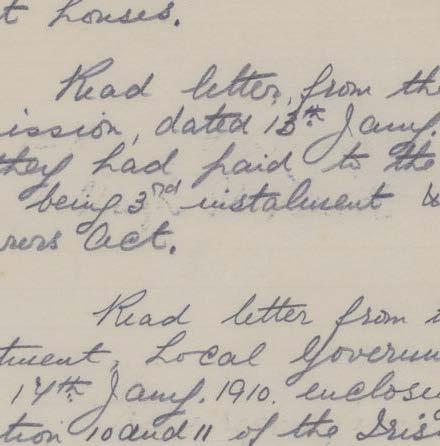 t houses.
Read letter, from the
ission, dated 13th Jany.
they had paid to the
being 3rd instalment
rers Act.
Read letter from
tment, Local Governm
14th Jany. 1910. enclosi
tion 10 and 11 of the Iris